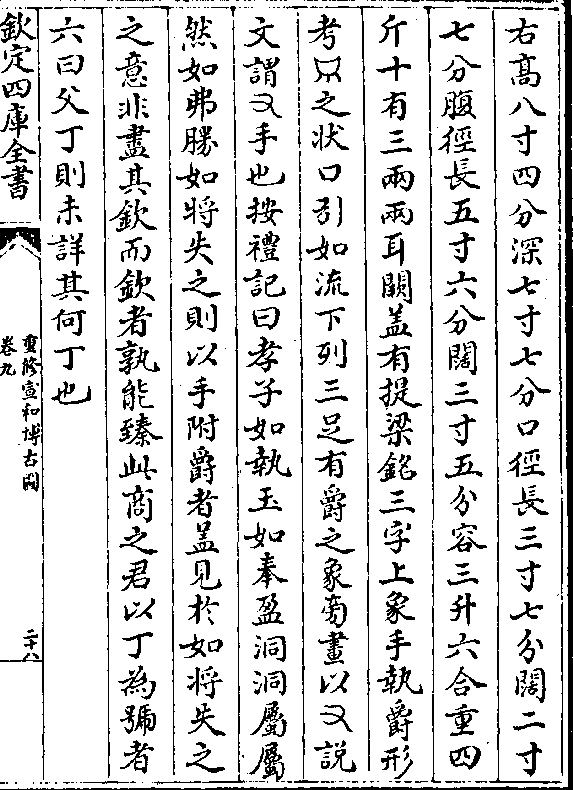 右髙八寸四分深七寸七分口徑長三寸七分闊二寸
七分腹徑長五寸六分闊三寸五分容三升六合重四
斤十有三兩兩耳闕盖有提梁銘三字上象手執爵形
考之状口引如流下列三足有爵之象旁畫以又説
文謂又手也按禮記曰孝子如執玉如奉盈洞洞屬屬
然如弗勝如將失之則以手附爵者盖見於如將失之
之意非盡其欽而欽者孰能臻此商之君以丁為號者
六曰父丁則未詳其何丁也
欽定四庫全書
重修宣和博古圖
卷九
二十八